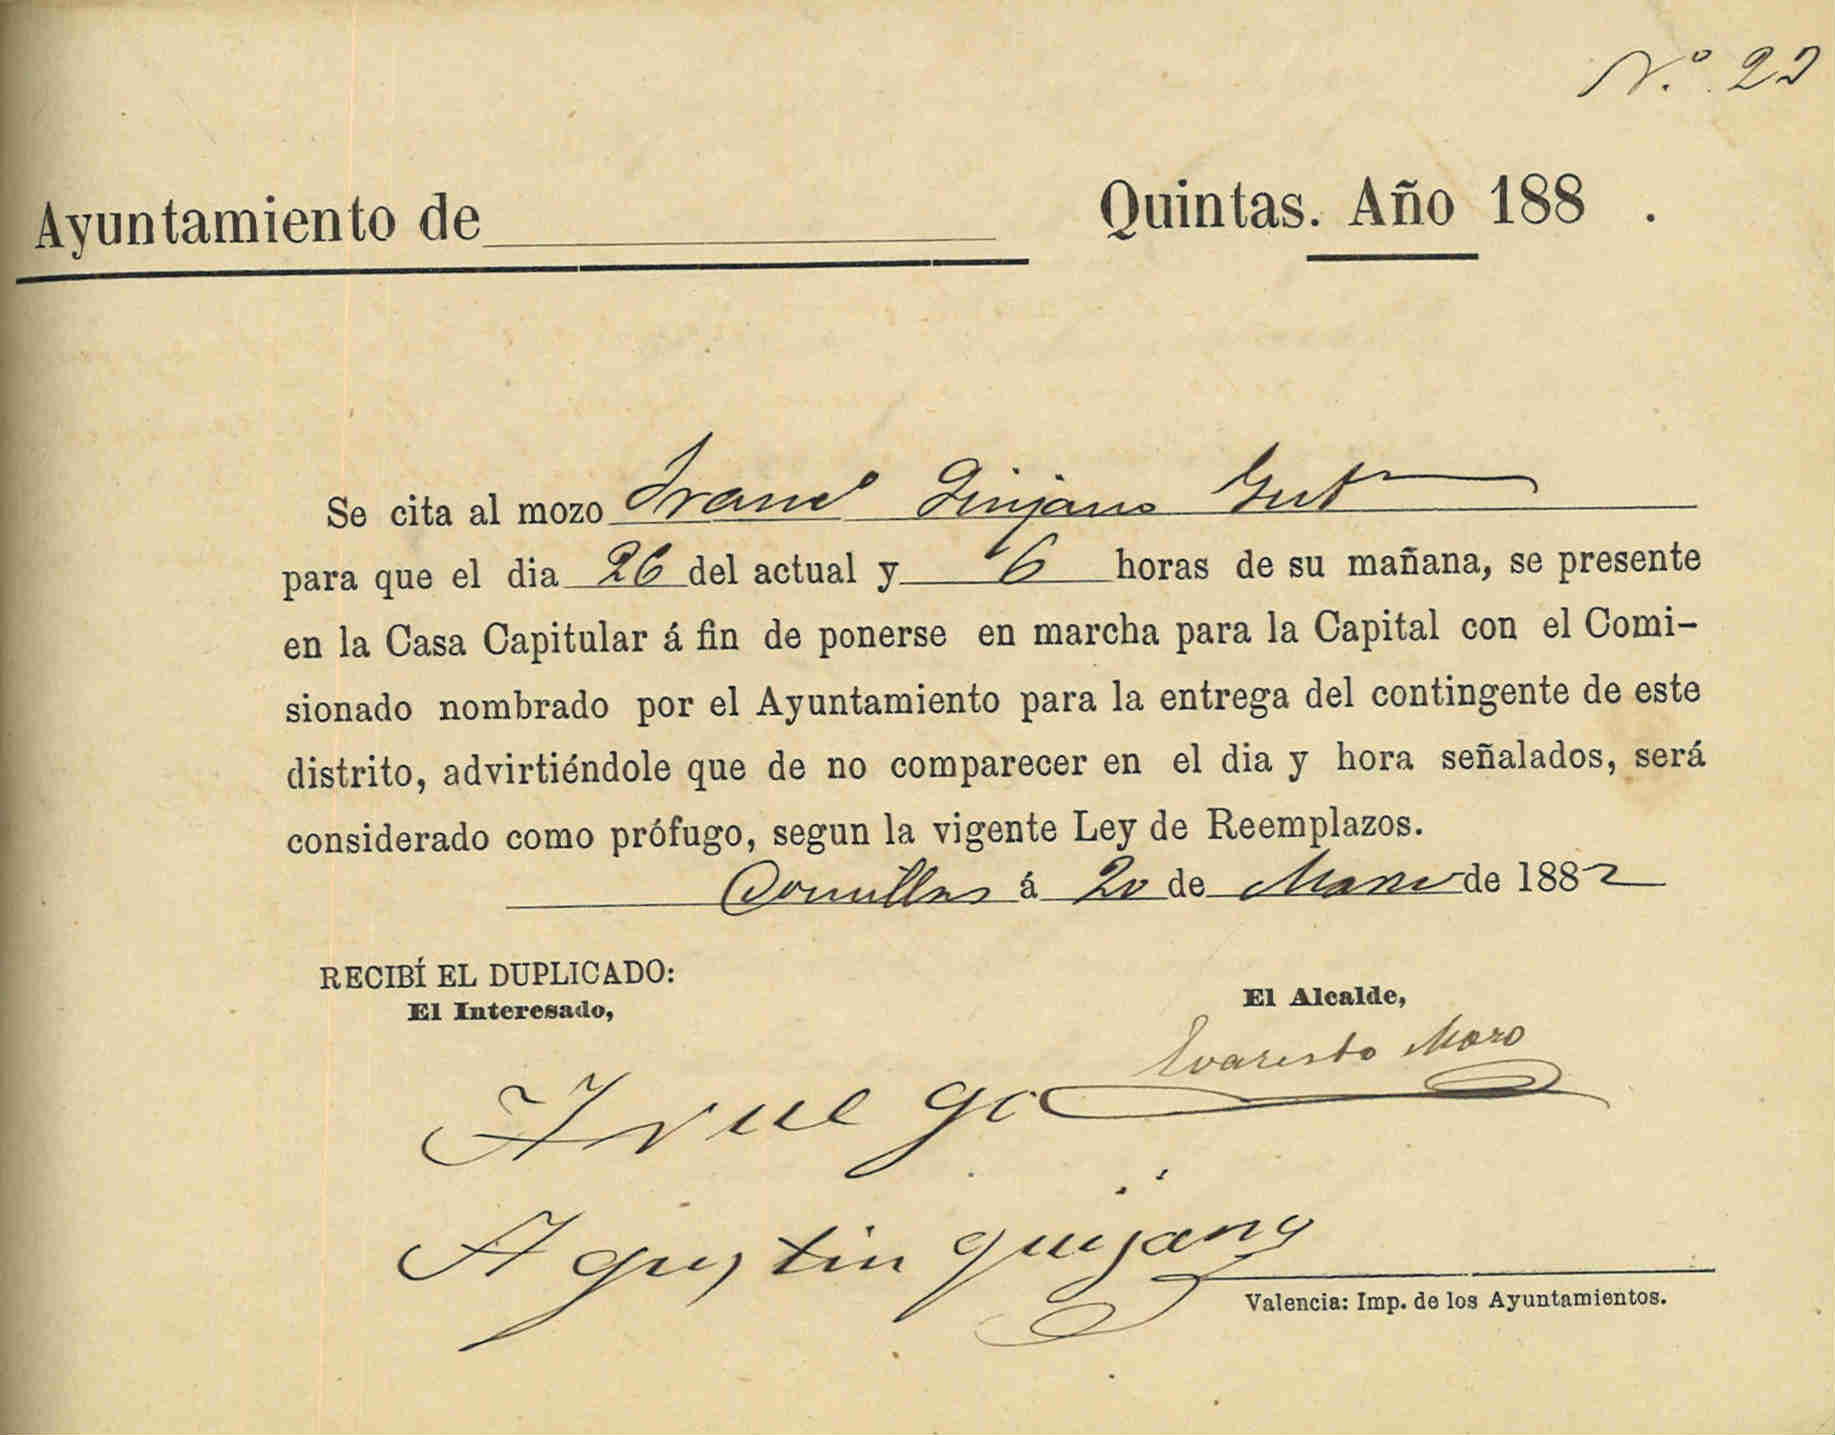 Nº 22
Ayuntamiento de
Quintas. Año 188 .
Se cita al mozo Francº Quijano Gut
para que el dia 26 del actual y 6 horas de su mañana, se presente
en la Casa Capitular á fin de ponerse en marcha para la Capital con el Comi-
sionado nombrado por el Ayuntamiento para la entrega del contingente de este
distrito, advirtiéndole que de no comparecer en el dia y hora señalados, será
considerado como prófugo, segun la vigente Ley de Reemplazos.
Comillas á 20 de Marzo de 1882
RECIBÍ EL DUPLICADO:
El Interesado,
El Alcalde,
Evaristo Moro
A ruego
Agustin quijano
Valencia: Imp. de los Ayuntamientos.